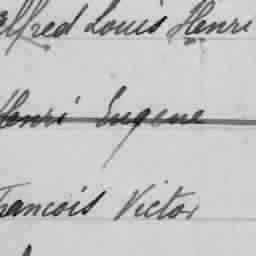 Alfred Louis Henri
Henri Eugene
Francois Victor